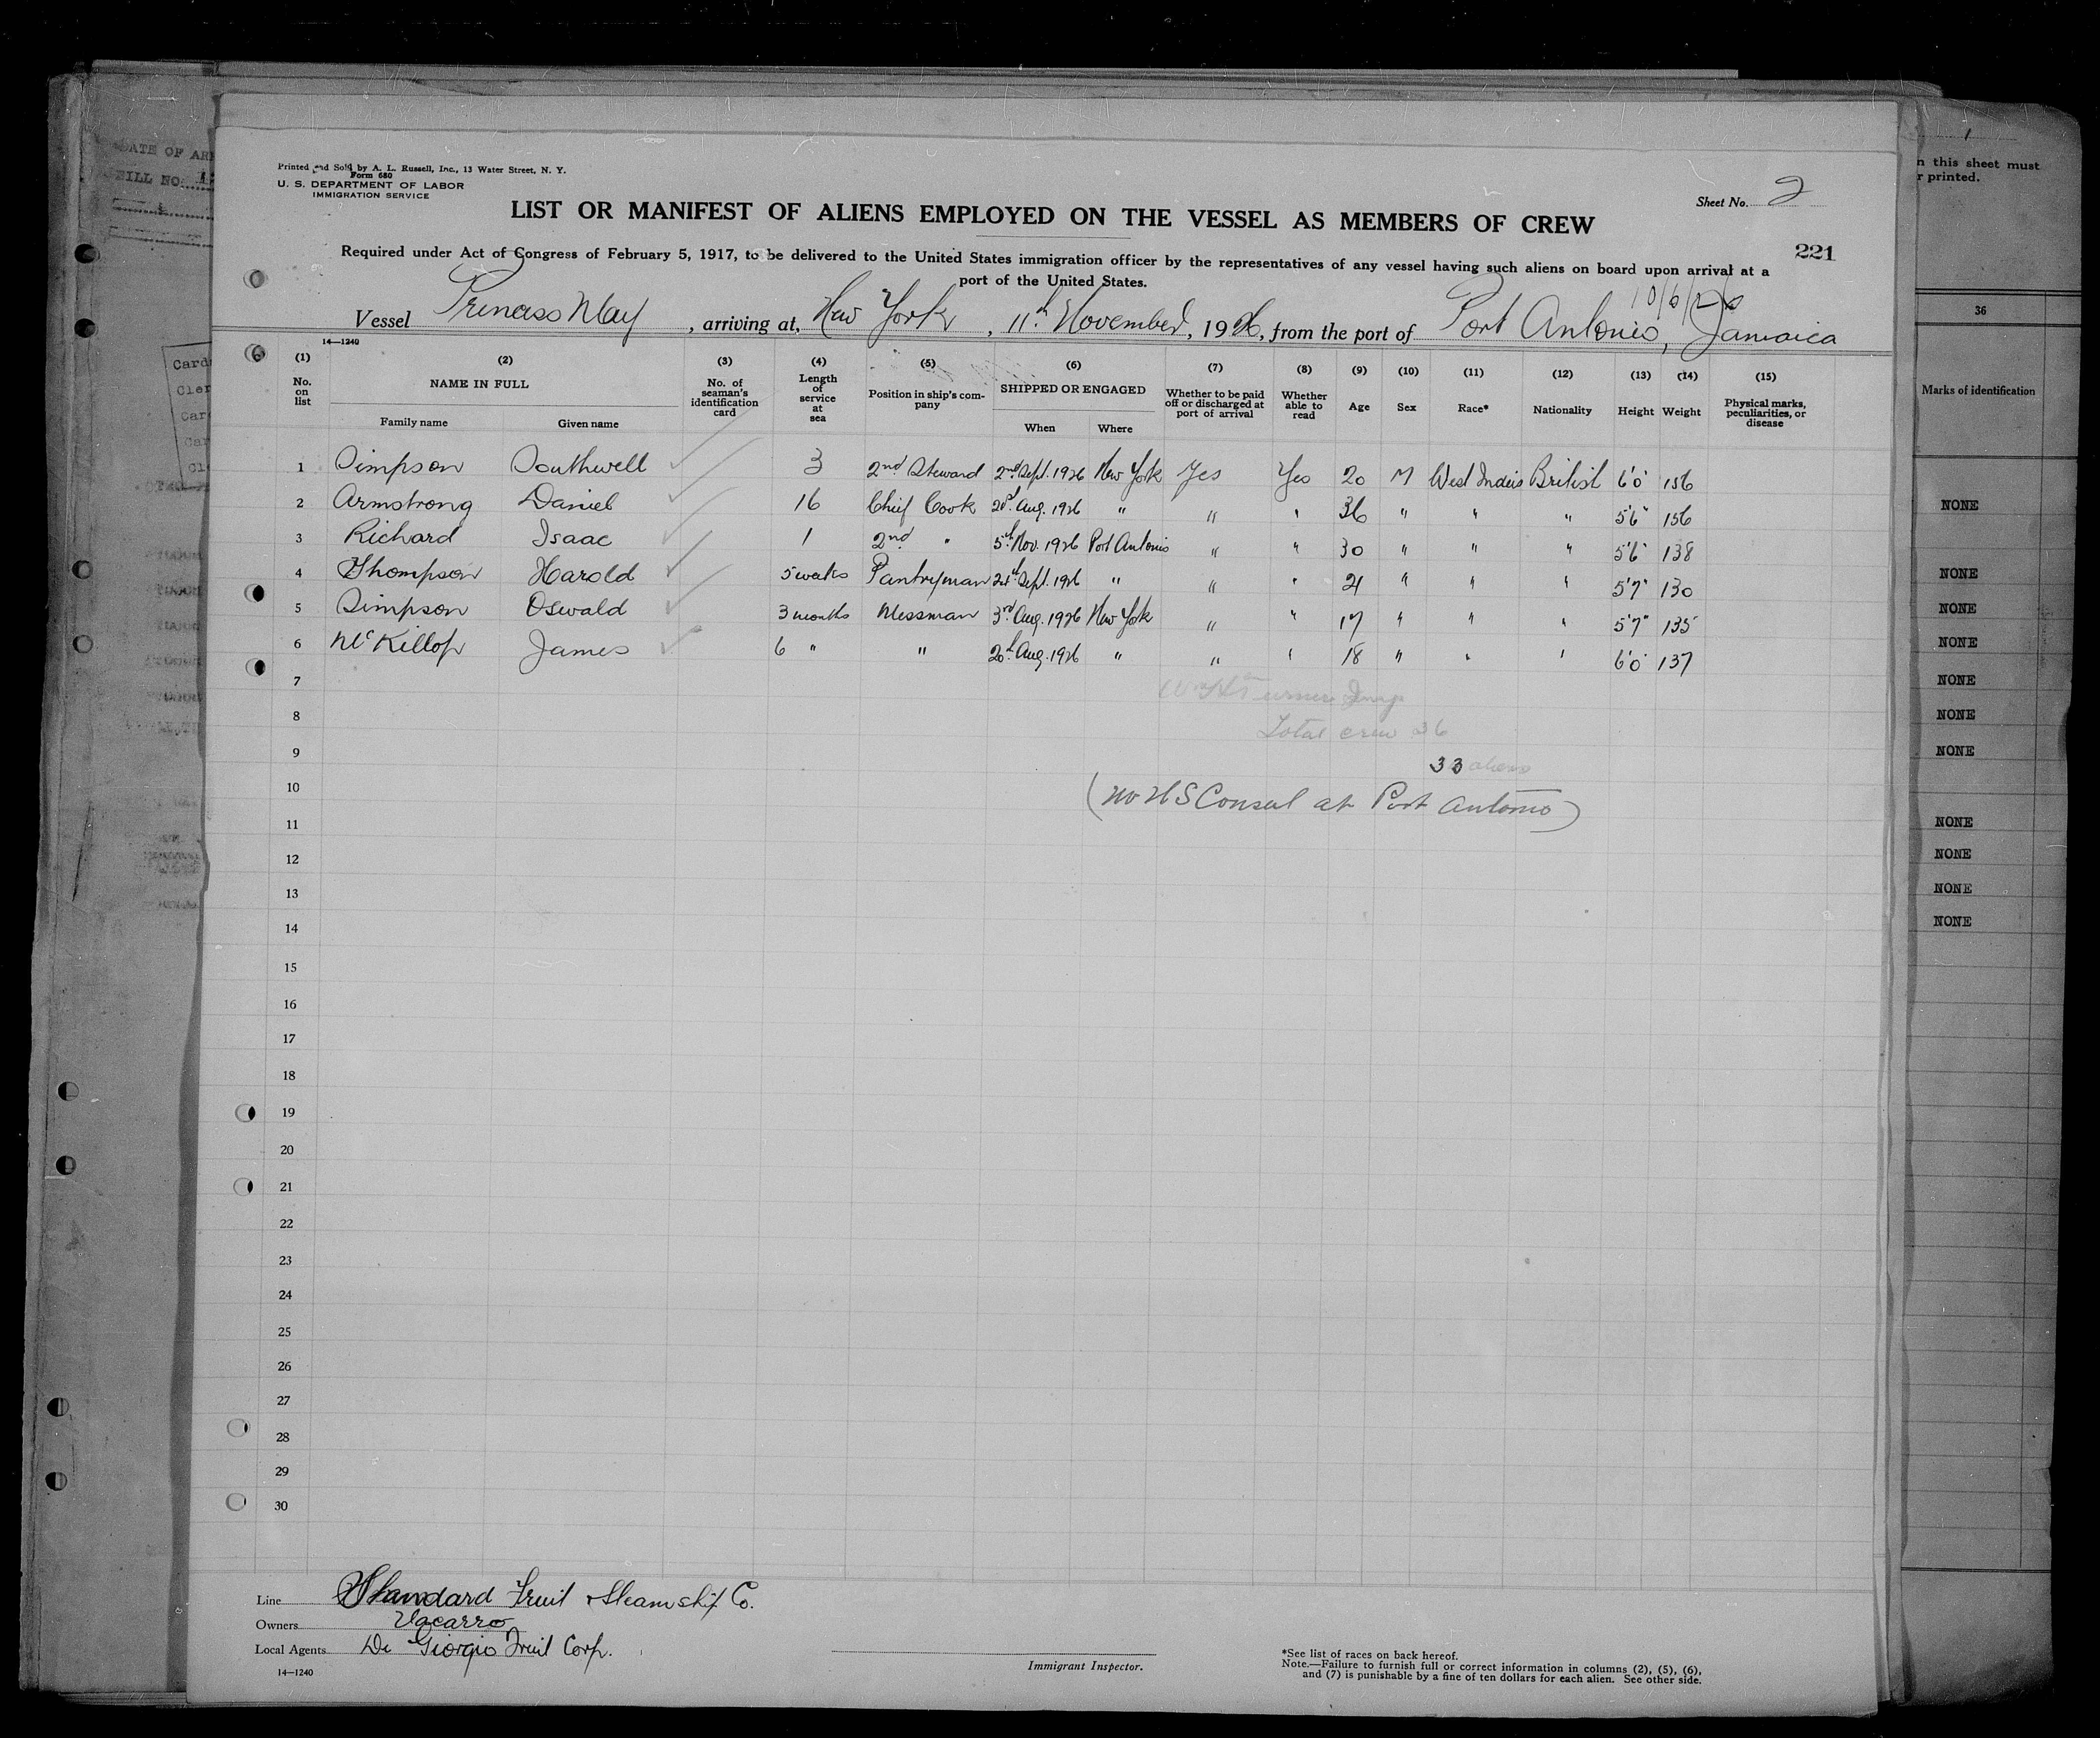 Printed and Sold by A. L. Russell, Inc., 13 Water Street, N. Y.
Form 680
U. S. DEPARTMENT OF LABOR
IMMIGRATION SERVICE
Sheet No. 2
LIST OR MANIFEST OF ALIENS EMPLOYED ON THE VESSEL AS MEMBERS OF CREW
221
Required under Act of Congress of February 5, 1917, to be delivered to the United States immigration officer by the representatives of any vessel having such aliens on board upon arrival at a
port of the United States.
Vessel Princess May, arriving at, New York, 11th November, 1926, from the port of Port Antonio, Jamaica
14—1240
(1) (2) (3) (4) (5) (6) (7) (8) (9) (10) (11) (12) (13) (14) (15)
No. on list NAME IN FULL No. of seaman's identification card Length of service at sea Position in ship's company SHIPPED OR ENGAGED Whether to be paid off or discharged at port of arrival Whether able to read Age Sex Race* Nationality Height Weight Physical marks, peculiarities, or disease
Family name Given name When Where
1 Simpson Southwell 3 2nd Steward 2nd Sept. 1926 New York Yes Yes 20 M West Indeis British 6'0" 156
2 Armstrong Daniel 16 Chief Cook Aug. 1926 " " " 36 " " " 5'6" 156
3 Richard Isaac 1 2nd " 5th Nov. 1926 Port Antonio " " 30 " " " 5'6" 138
4 Thompson Harold 5 weeks Pantryman 24th Sept. 1926 " " " 21 " " " 5'7" 130
5 Simpson Oswald 3 months Messman 3rd Aug. 1926 New York " " 17 " " " 5'7" 135
6 McKillop James 6 " " 20th Aug. 1926 " " " 18 " " " 6'0" 137
7
8 Total crew 36
9 33 aliens
10 (no US Consul at Port Antonio)
11
12
13
14
15
16
17
18
19
20
21
22
23
24
25
26
27
28
29
30
Line Standard Fruit & Steamship Co.
Owners Vacarro
Local Agents De Giorgio Fruit Corp.
14—1240
Immigrant Inspector.
*See list of races on back hereof.
Note.—Failure to furnish full or correct information in columns (2), (5), (6),
and (7) is punishable by a fine of ten dollars for each alien. See other side.
DATE OF
BILL NO.
this sheet must
printed.
36
Marks of identification
NONE
NONE
NONE
NONE
NONE
NONE
NONE
NONE
NONE
NONE
NONE